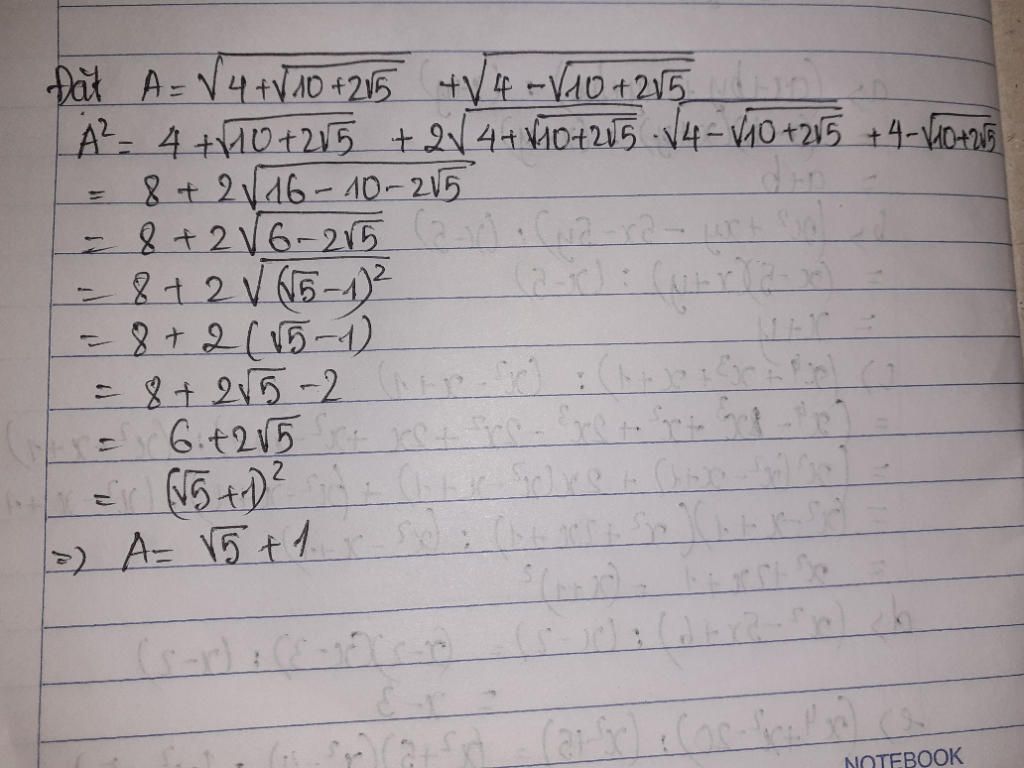 Đặt A = √(4+√(10+2√5)) + √(4-√(10+2√5))
A² = 4+√(10+2√5) + 2√(4+√(10+2√5)) · √(4-√(10+2√5)) + 4-√(10+2√5)
= 8 + 2√(16-10-2√5)
= 8 + 2√(6-2√5)
= 8 + 2√((√5-1)²)
= 8 + 2(√5-1)
= 8 + 2√5 - 2
= 6 + 2√5
= (√5+1)²
=> A = √5 + 1
NOTEBOOK